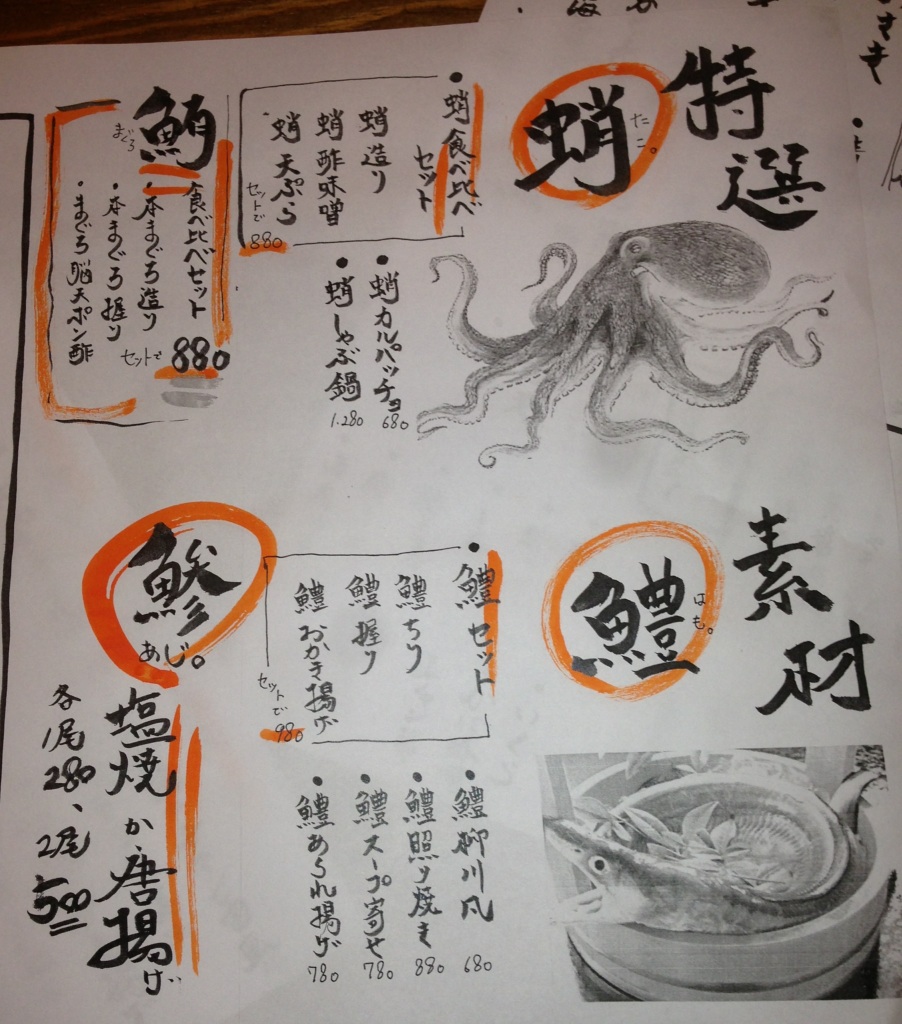 特選
素材
蛸
たこ。
・蛸食べ比べ
セット
蛸造り
蛸酢味噌
蛸天ぷら
セットで
880
・蛸カルパッチョ
680
・蛸しゃぶ鍋
1.280
鮪
まぐろ
食べ比べセット
・本まぐろ造り
・本まぐろ握り
・まぐろ脳天ポン酢
セットで
880
鱧
はも。
・鱧セット
鱧ちり
鱧握り
鱧おかき揚げ
セットで
980
・鱧柳川風
680
・鱧照り焼き
880
・鱧スープ寄せ
780
・鱧あられ揚げ
780
鯵
あじ。
塩焼か唐揚げ
各1尾280、2尾500